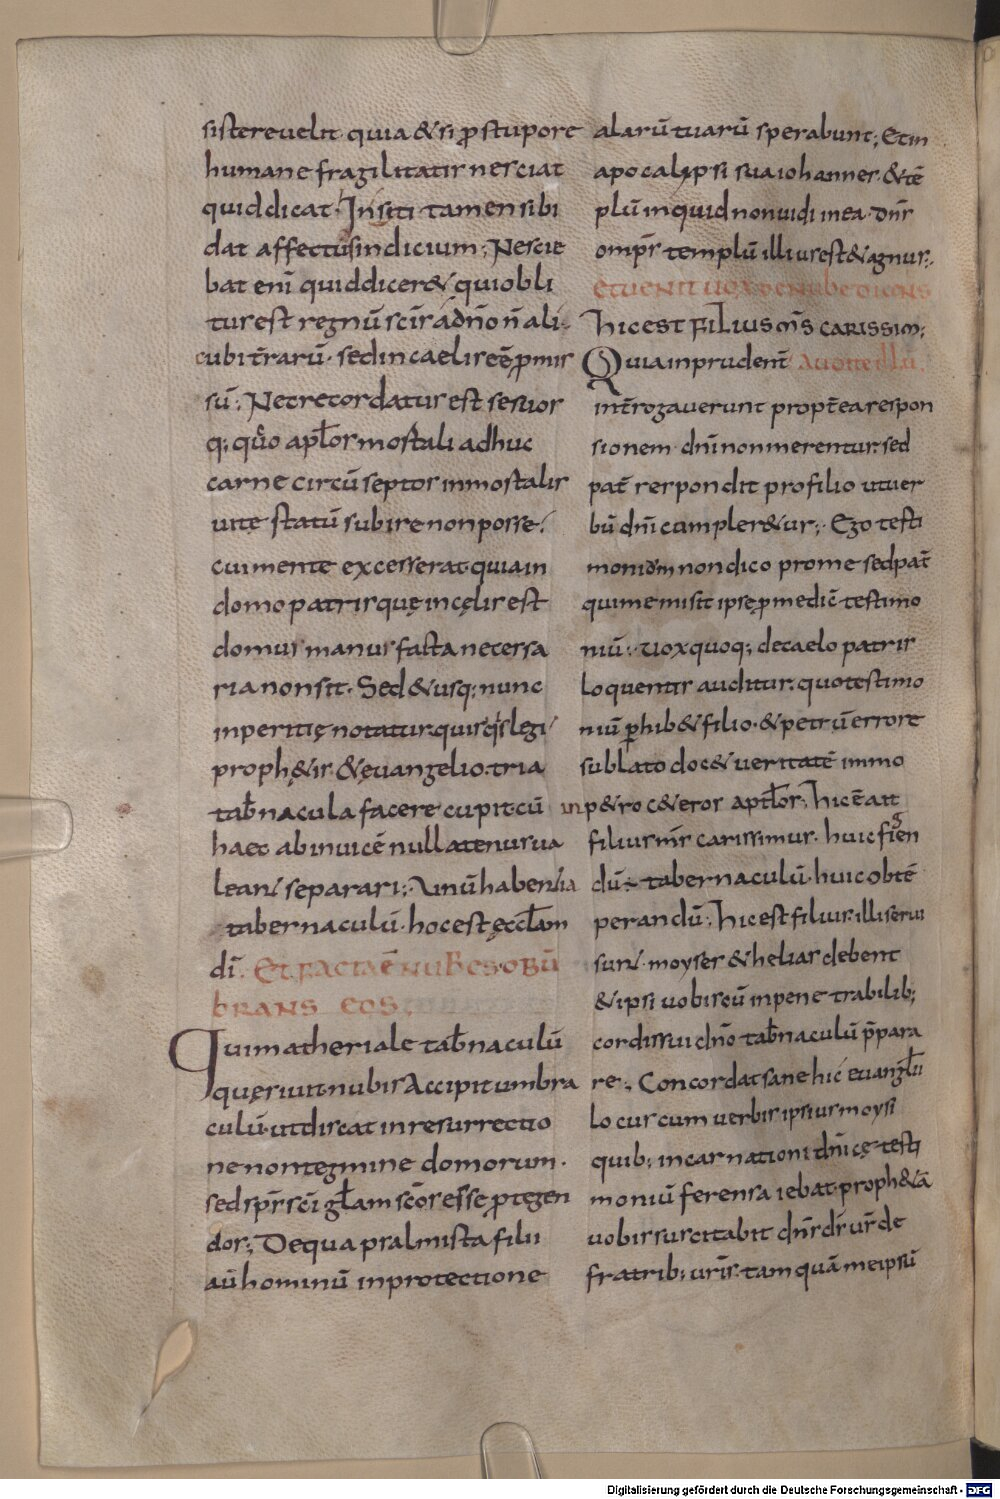 sistere velit quia & si ꝓ stupore
humane fragilitatis nesciat
quid dicat. Insiti tamen sibi
dat affectus indicium; Nescie
bat eni̅ quid dicer& qui obli
tus est regnu̅ sc̅is a dn̅o n̅ ali
cubi t̅raru̅. sed in caelis ee̅ ꝓmis
su̅; Nec recordatus est se suos
q; qu̅o apl̅os mortali adhuc
carne circu̅septos inmortalis
uitę statu̅ subire non posse.
cui mente excesserat quia in
domo patris quę in cęlis est
domus manu facta necessa
ria non sit. Sed & usq; nunc
inperitię notatur quisq̇s legi
proph&is. & ęuangelio. tria
tab̅nacula facere cupit cu̅
haec ab inuice̅ nullatenus ua
leant separari; Unu̅ habentia
tabernaculu̅. hoc est ęccl̅am
di̅. Et facta e̅ nubes obu̅
brans eos.
Qui matheriale tab̅naculu̅
quęsiuit nubis accipit umbra
culu̅. ut discat in resurrectio
ne non tegmine domorum.
sed sp̅s sc̅i gl̅a m sc̅os esse ꝓtegen
dos; De qua psalmista filii
au̅ hominu̅ in protectione
alaru̅ tuaru̅ sperabunt; Et in
apocalypsi sua iohannes. & te̅
plu̅ inquid non uidi in ea. dn̅s
omp̅s templu̅ illius est & agnus;
Et uenit uox de nube dicens
hic est filius m̅s carissim;
Quia inprudent̅
int̅rogauerunt propt̅ea respon
sionem dn̅i non merentur. sed
pat̅ respondit pro filio ut uer
bu̅ dn̅i compler&ur; Ego testi
monium non dico pro me sed pat̅
qui me misit ipse ꝓ me dic̅ testimo
niu̅; Uox quoq; de caelo patris
loquentis auditur. quo testimo
niu̅ ꝑhib& filio. & petru̅ errore
sublato doc& ueritate̅ immo
in p&ro c&eros apl̅os; Hic e̅ ait
filius m̅s carissimus. huic figen
du̅ ÷ tabernaculu̅. huic obte̅
perandu̅; Hic est filius. illi serui
sunt. moyses & helias debent
& ipsi uobiscu̅ in penetrabilib;
cordis sui dn̅o tab̅naculu̅ p̅para
re; Concordat sane hic euangl̅ii
locus cum uerbis ipsius moysi
quib; incarnationi dn̅icę testi
moniu̅ ferens aiebat. proph&a̅
uobis suscitabit dn̅s ds̅ us̅ de
fratrib; uris̅. tam qua̅ me ipsu̅
Digitalisierung gefördert durch die Deutsche Forschungsgemeinschaft - DFG